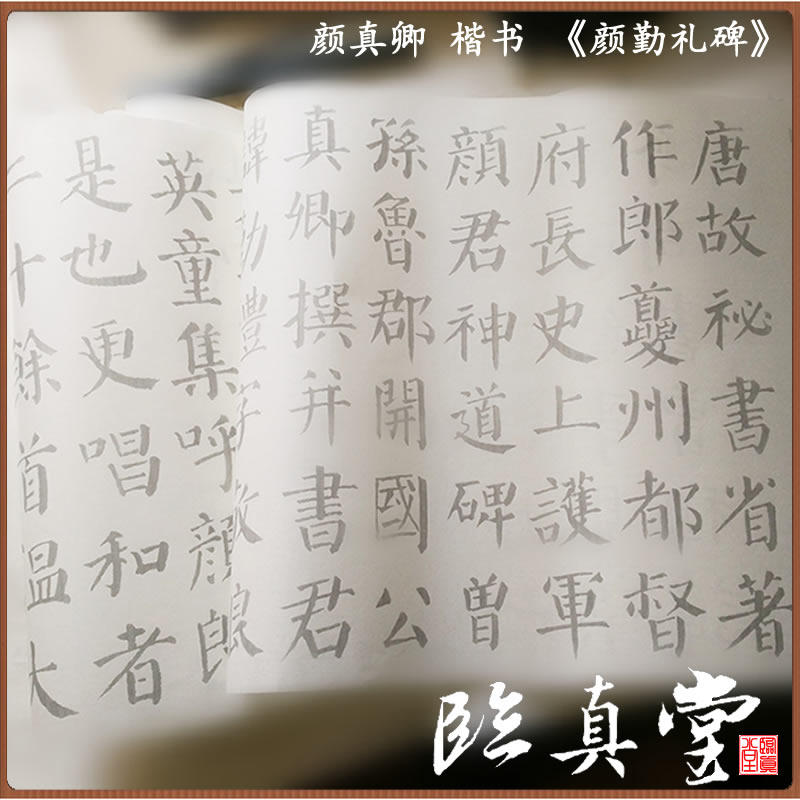 颜真卿 楷书 《颜勤礼碑》
唐故祕書省著
作郎夔州都督
府長史上護軍
顔君神道碑曽
孫魯郡開國公
真卿撰并書君
諱勤禮字敬
英童集呼顔郎
是也更唱和者
十餘首温大
臨真堂